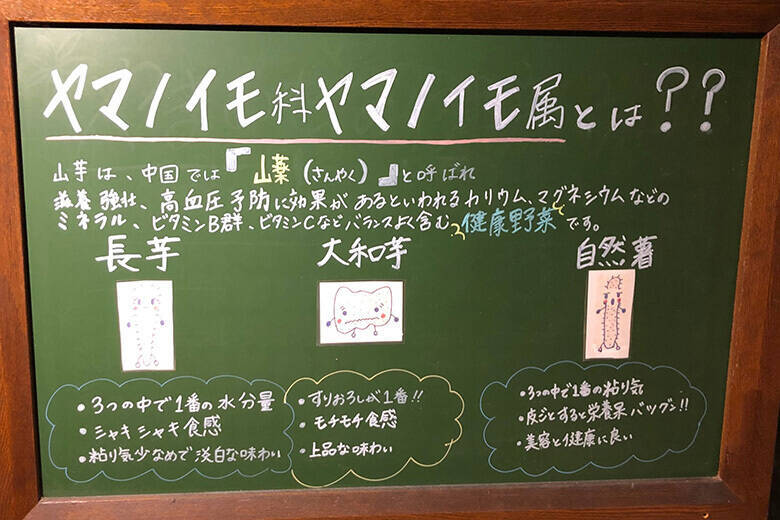 ヤマノイモ科ヤマノイモ属とは??
山芋は、中国では『山薬(さんやく)』と呼ばれ
滋養強壮、高血圧予防に効果があるといわれるカリウム、マグネシウムなどの
ミネラル、ビタミンB群、ビタミンCなどバランスよく含む、健康野菜です。
長芋
大和芋
自然薯
・3つの中で1番の水分量
・シャキシャキ食感
・粘り気少なめで淡白な味わい
・すりおろしが1番!!
・モチモチ食感
・上品な味わい
・3つの中で1番の粘り気
・皮ごとすると栄養系バツグン!!
・美容と健康に良い